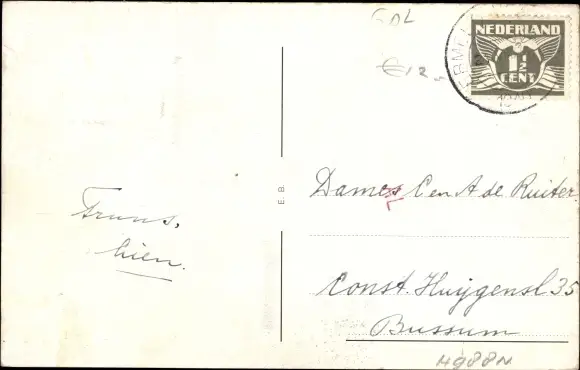 GOL
NEDERLAND
1½
CENT
€12,
E. B.
Truus,
Lien.
Dames C en A de Ruiter
Const. Huijgensl 35
Bussum
4988N